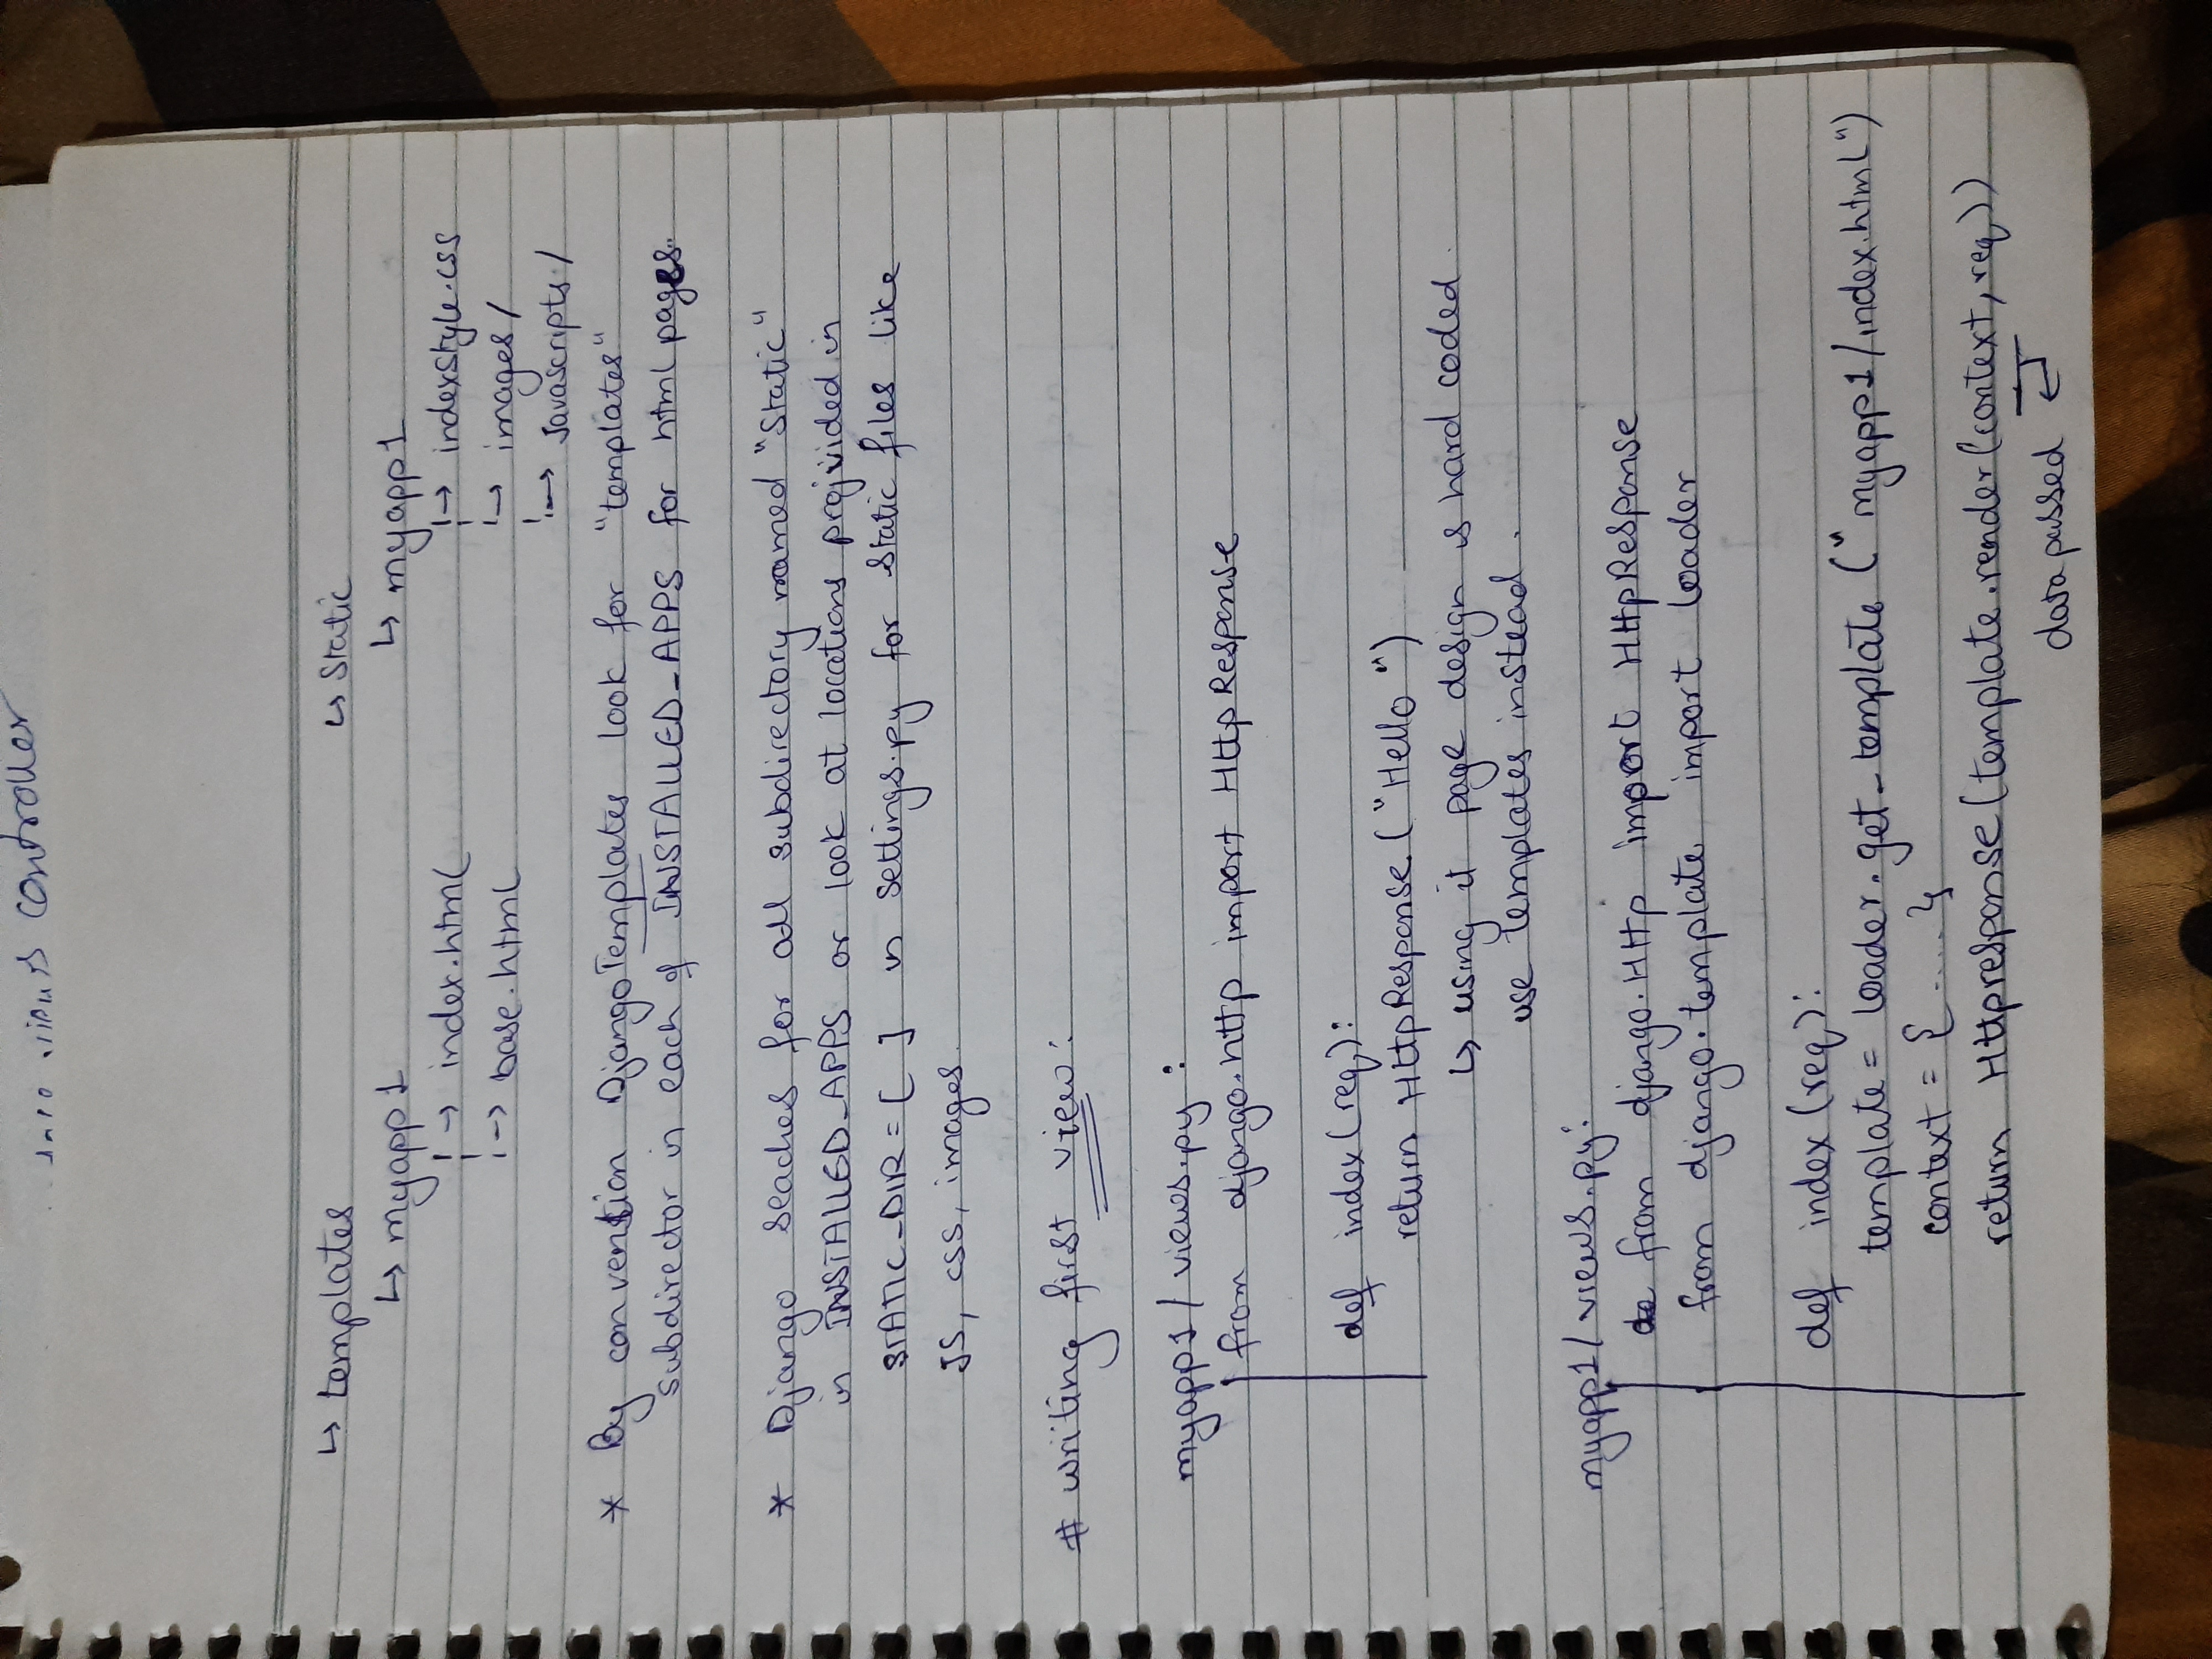 controller
↳ templates ↳ Static
↳ myapp1 ↳ myapp1
→ index.html → indexstyle.css
→ base.html → images/
→ Javascripts/
* By convention DjangoTemplates look for "templates"
subdirector in each of INSTALLED_APPS for html pages.
* Django seaches for all subdirectory named "Static"
in INSTALLED_APPS or look at locations provided in
STATIC_DIR = [ ] in settings.py for static files like
JS, css, images.
# writing first view:
myapp1/views.py:
from django.http import HttpResponse
def index(req):
return HttpResponse("Hello")
↳ using it page design is hard coded.
use templates instead.
myapp1/views.py:
from django.Http import HttpResponse
from django.template import loader
def index(req):
template = loader.get_template("myapp1/index.html")
context = {.....}
return Httpresponse(template.render(context, req))
data passed ↵